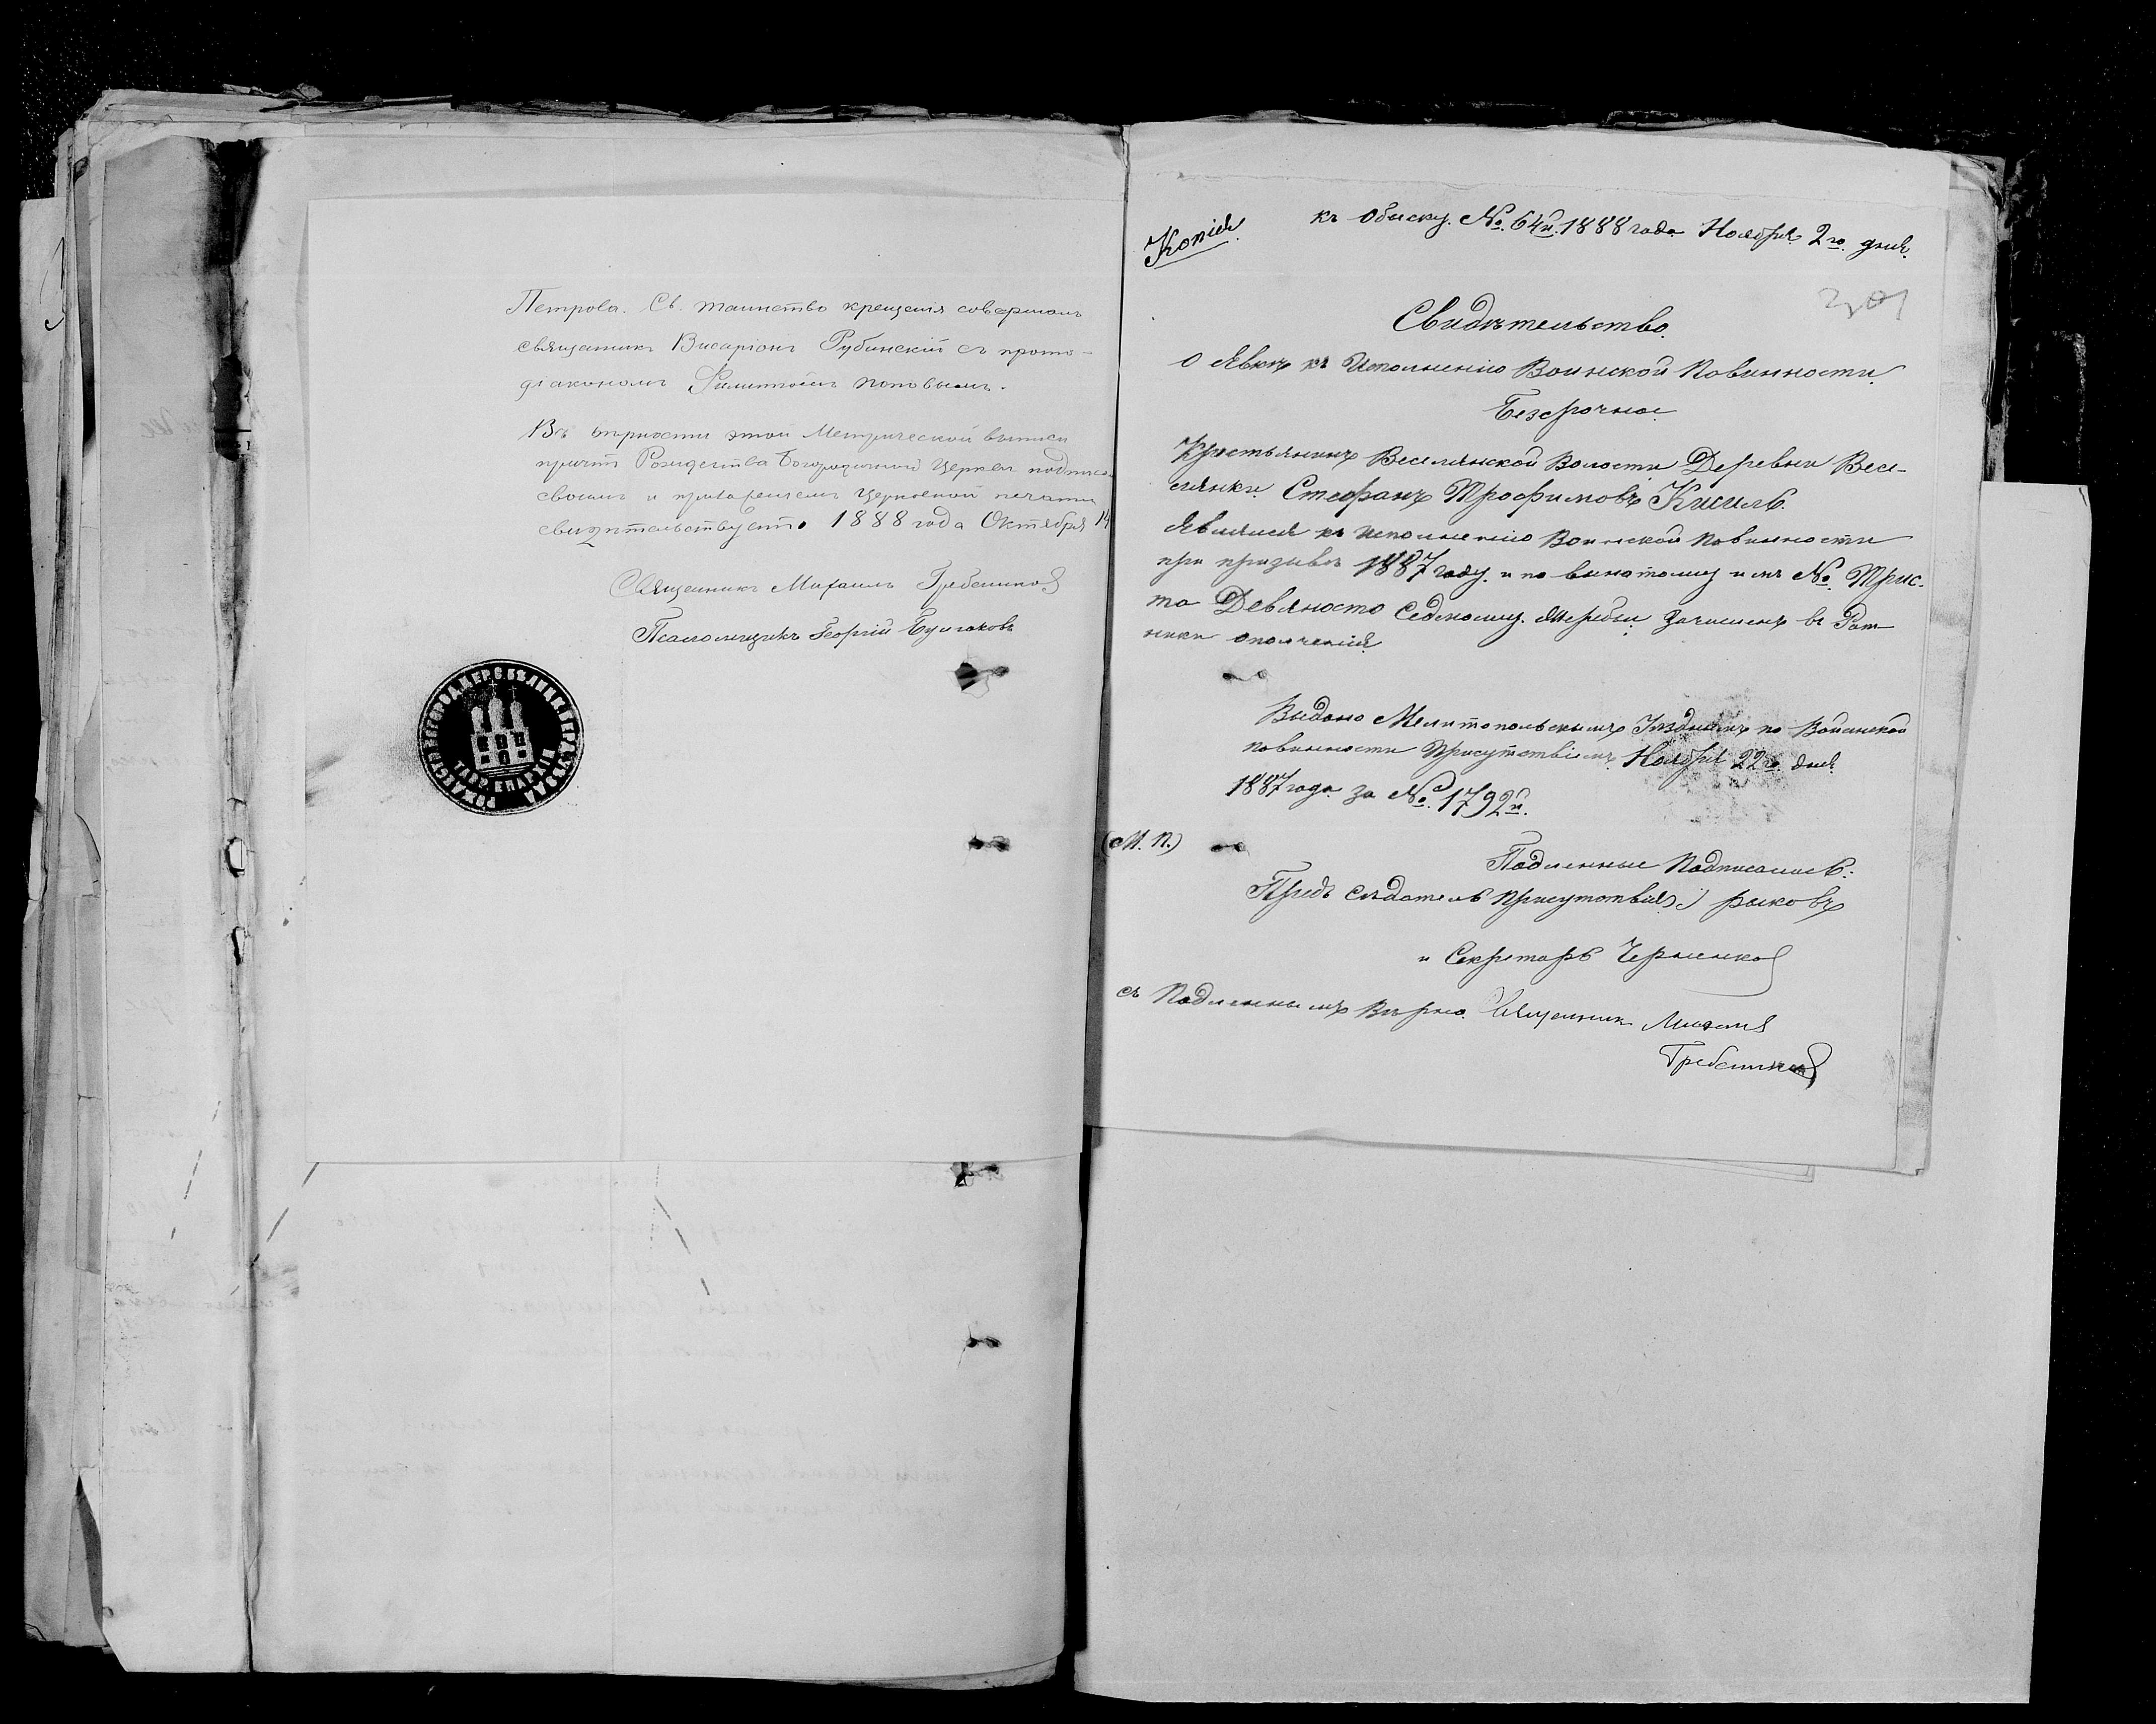 Петрова. Св. таинство крещенія совершалъ
священникъ Висаріонъ Рубинскій съ прото-
діакономъ Поповымъ.
Въ вѣрности этой Метрической выписи
причтъ Рождества Богородичной Церкви подписомъ
своимъ и приложеніемъ Церковной печати
свидѣтельствуетъ. 1888 года Октября 14
Священникъ Михаилъ Гребенников
Псаломщикъ Георгій Булгаковъ
ТАВР. ЕПАРХІИ
Копія.
къ Обыску. №. 64й. 1888 года Ноября 2го. дня.
301
Свидѣтельство.
О Явкѣ къ Исполненію Воинской Повинности.
Безсрочное
Крестьянинъ Веселянской Волости Деревни Весе-
лянки Стефанъ Трофимовъ Кисиль.
Являлся къ исполненію Воинской Повинности
при призывѣ 1887 году. и по вынатому имъ №. Трис-
та Девяносто Седмому. Жеребью. Зачисленъ въ Рат-
ники ополченія.
Выдано Мелитопольскимъ Уѣзднымъ по Воинской
Повинности Присутствіемъ Ноября 22го. дня
1887 года за №. 1792й.
(М. П.)
Подленные Подписалисъ:
Предъ сѣдатель Присутствія) Рыковъ
и Секретарь Черненко
съ Подленнымъ Вѣрно. Священник Михаил
Гребенников